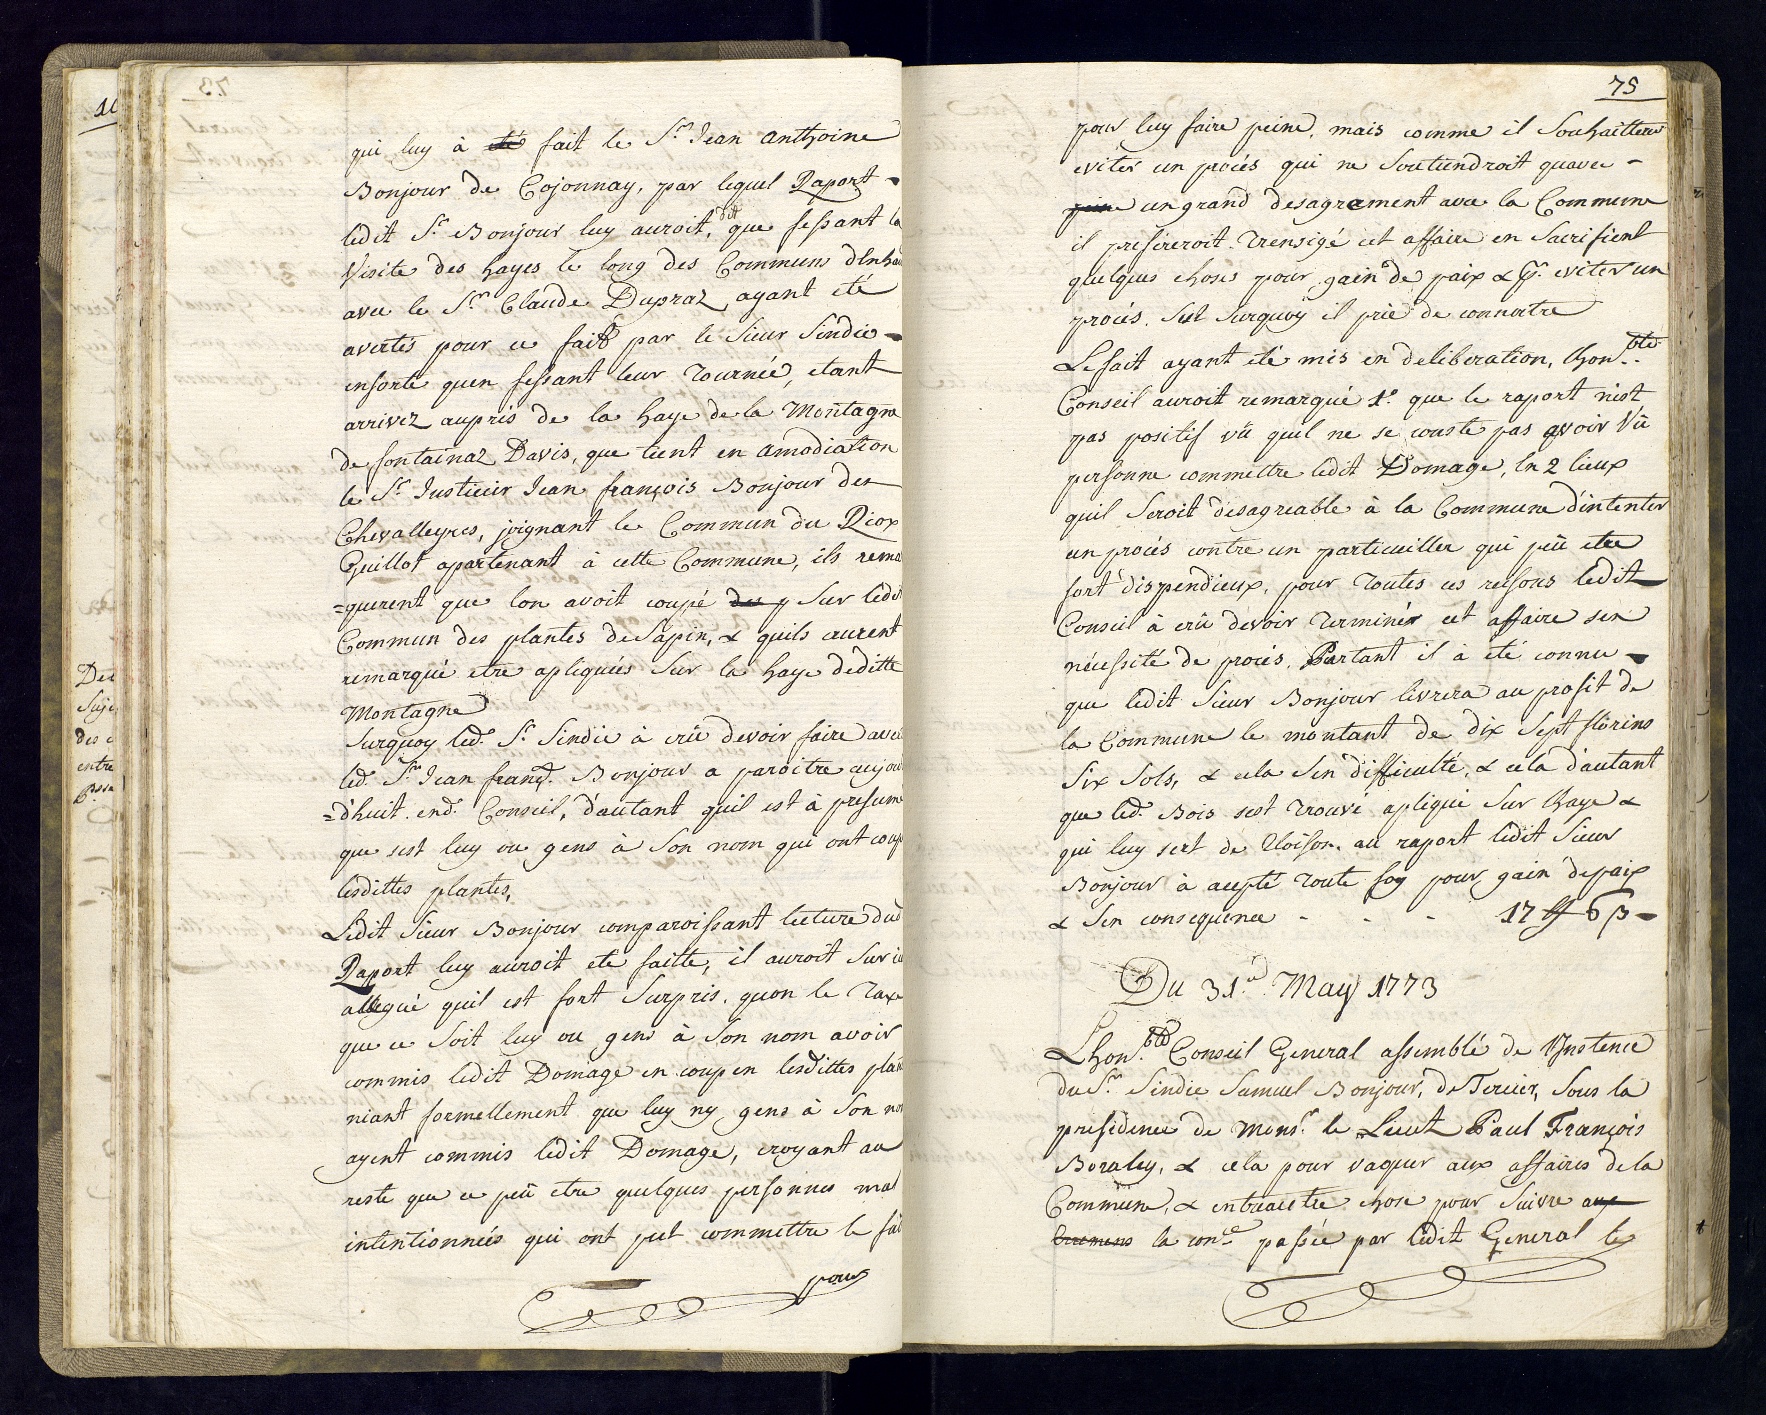 qui luy à eté fait le S.r Jean anthoine
Bonjour de Cojonnay, par lequel Raport
ledit S.r Bonjour luy auroit, dit que fessant la
Visite des hayes le long des Communs
avec le S.r Claude Dupraz ayant eté
avertis pour ce fait par le Sieur Sindic
ensorte quen fessant leur Tournée, etant
arrivez aupris de la haye de la Montagne
de fontainaz Davis, que tient en amodiation
le S.r Justicier Jean françois Bonjour des
Chevalleyres, joignant le Commun du Riox
Guillot apartenant à cette Commune, ils remar
=querent que lon avoit coupé des p Sur ledit
Commun des plantes de Sapin, & quils curent
remarqué etre apliquées Sur la haye deditte
Montagne
Surquoy led. S.r Sindic à crû devoir faire
led. S.r Jean franç. Bonjour a paroitre aujour
=d'huit. end. Conseil, d'autant quil est à presumé
que sest luy ou gens à Son nom qui ont coupé
lesdittes plantes,
Ledit Sieur Bonjour comparoissant lecture dud
Raport luy auroit eté faitte, il auroit Sur ce
allegué quil est fort Surpris. quon le Taxe
que ce Soit luy ou gens à Son nom avoir
commis ledit Domage en coupen lesdittes
niant formellement que luy ny gens à Son nom
ayent commis ledit Domage, croyant au
reste que ce peû etre quelques personnes mal
intentionneés qui ont put commettre le fait
pour
75
pour luy faire peine, mais comme il Souhaitteroit
eviter un procés qui ne Soutiendroit quavec
peine un grand desagrement avec la Commune
il prefereroit Trensigé cet affaire en Sacrifient
quelques chose pour gain de paix & p.r eviter un
procés. Sut Surquoy il prie de connoitre
Le fait ayant eté mis en deliberation, lhon.ble
Conseil auroit remarqué 1.o que le raport nest
pas positif vû quil ne se conste pas avoir Vû
personne commettre ledit Domage, En 2 lieux
quil Seroit desagreable à la Commune d'intenter
un procés contre un particuiller qui peû etre
fort dispendieux, pour Toutes ces resons ledit
Conseil à crû devoir Terminér cet affaire sen
nécessité de procés. Partant il à eté connu
que ledit Sieur Bonjour livrera au profit de
la Commune le montant de dix Sept florins
Six Sols, & cela Sen difficulté, & cela d'autant
que led. Bois sest Trouvé apliqué Sur lhaye &
qui luy sert de Cloison. au raport ledit Sieur
Bonjour à acepté Toute foy pour gain de paix
& Sen consequence - - - 17 ff 6 ß
Du 31.e May 1773
Lhon.ble Conseil General assemblé de l'Instence
du S.r Sindic Samuel Bonjour, de Tercier, Sous la
présidence de Mons.r le Lieut Paul François
& cela pour vaquer aux affaires de la
Commune, & entrautre chose pour Suivre aux
la con.ce passée par ledit General le